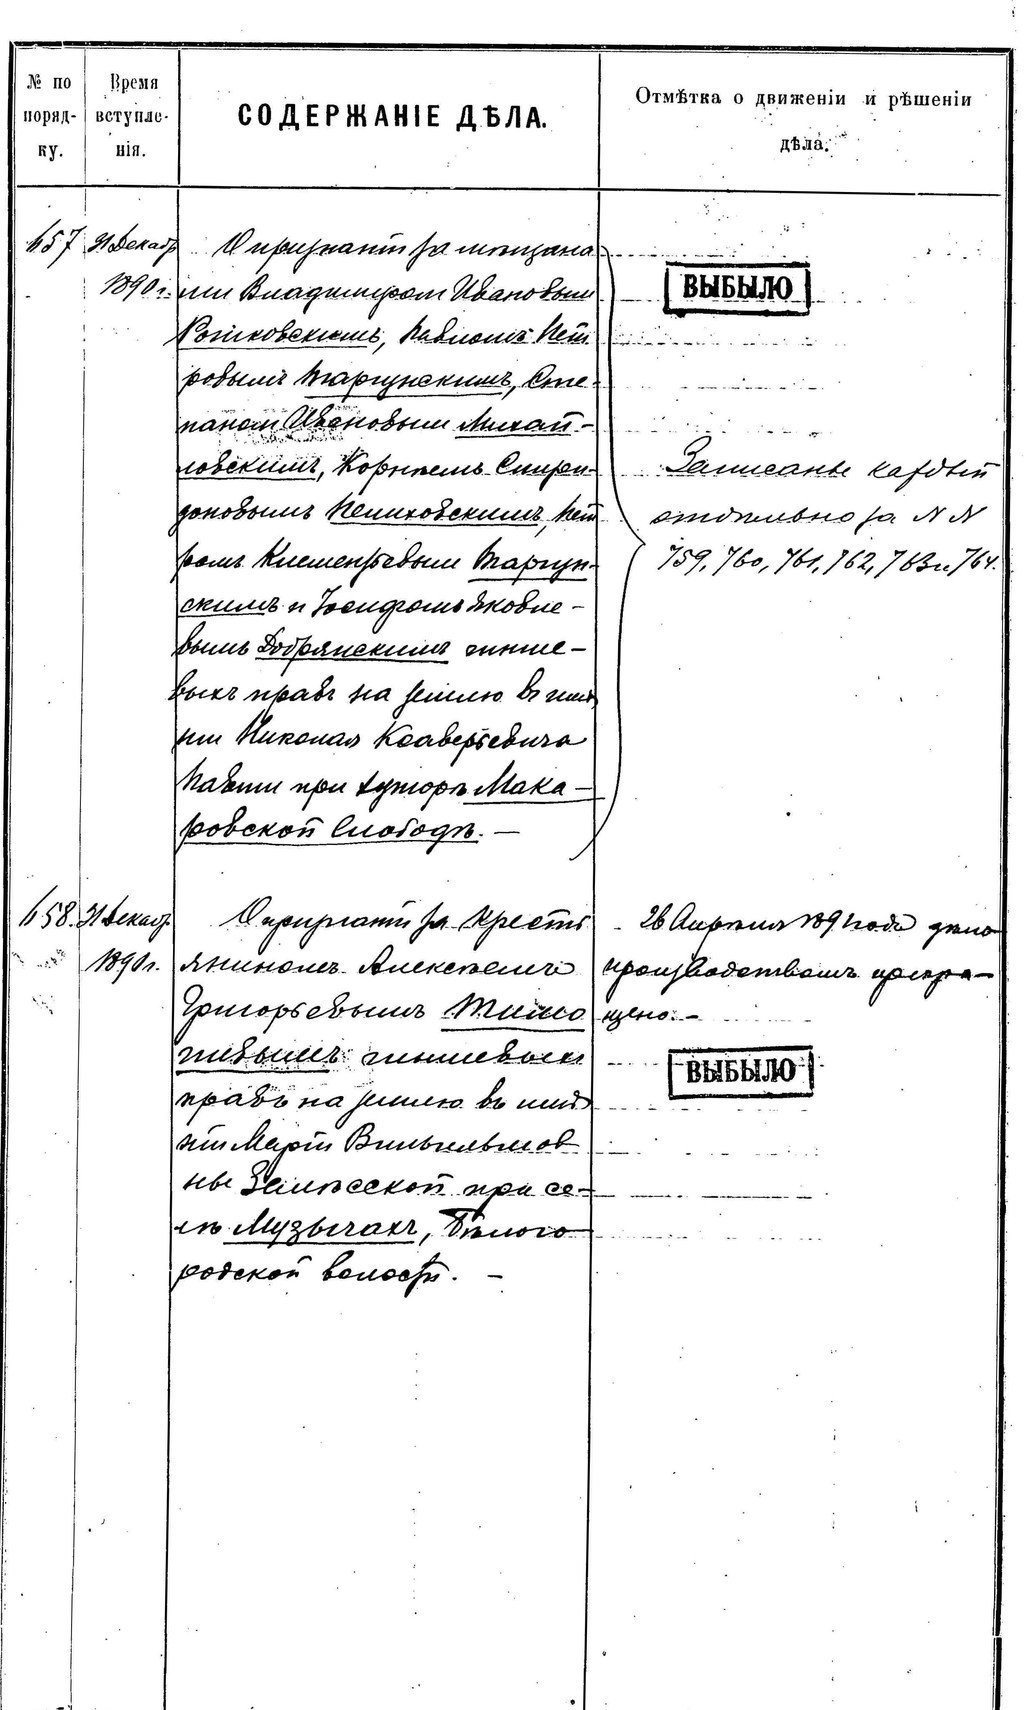 № по поряд- ку.
Время вступле- нія.
СОДЕРЖАНІЕ ДѢЛА.
Отмѣтка о движеніи и рѣшеніи
дѣла.
657
31 Декабр
1890 г.
О признаніи за мѣщана
ми Владиміром Ивановым
Витковскимъ, Павломъ Пет
ровымъ Таргунскимъ, Сте-
паном Ивановым Михай-
ловскимъ, Корнѣемъ Спири-
доновымъ, Пет
ромъ Климентьевым Таргун-
скимъ и Іосифомъ Яковле-
вымъ Добрянскимъ чинше-
выхъ правъ на землю въ имѣ
ніи Николая Ксаверьевича
при хуторѣ Мака-
ровской Слободѣ. —
ВЫБЫЛО
Записанъ каждый
отдѣльно за N N
759, 760, 761, 762, 763 и 764.
658.
31 Декабр
1890 г.
О признаніи за крестъ
яниномъ Алексѣемъ
Григорьевымъ Тимо
чиншевыхъ
правъ на землю въ имѣ
ніи Маріи Вильгельмов
ны Залѣсской при се-
лѣ Музычахъ, Бѣлого
родской волости. —
26 Апрѣля 1891 года дѣло
производствомъ прекра-
щено. —
ВЫБЫЛО